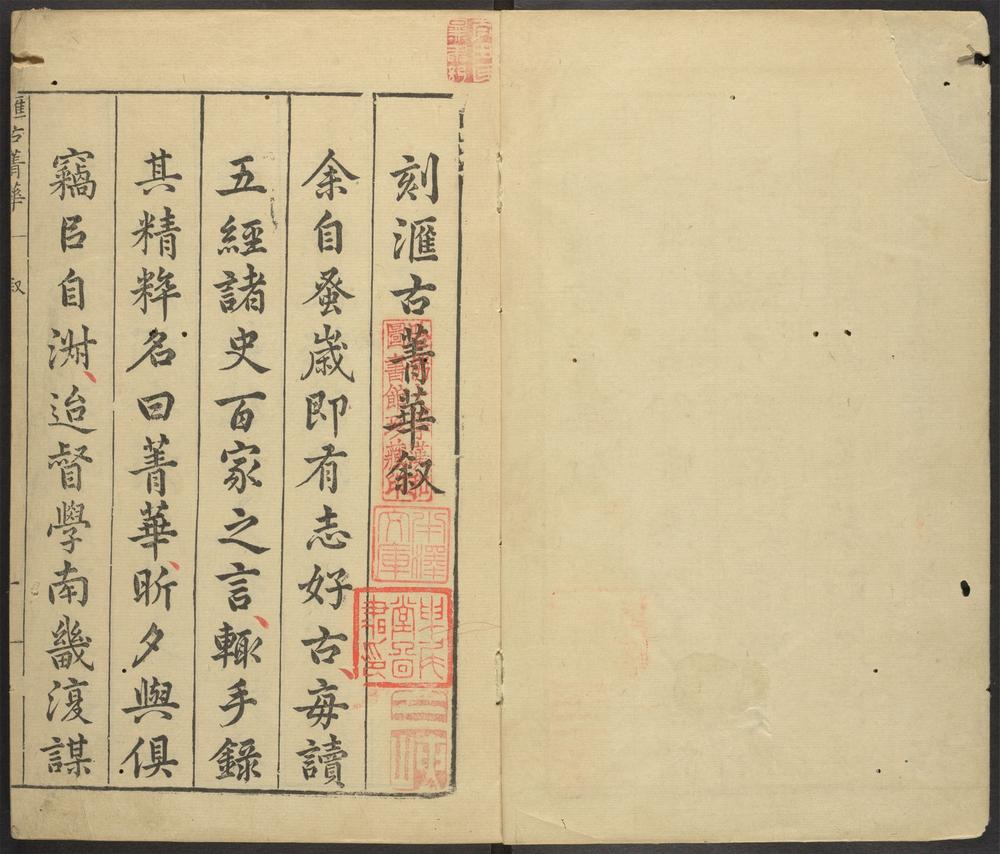 刻滙古菁華叙
余自蚤歲即有志好古、毎讀
五經諸史百家之言、輙手錄
其精粹名曰菁華、昕夕與俱
竊㠯自澍、迨督學南畿復謀
滙古菁華
叙
圖書館
文庫